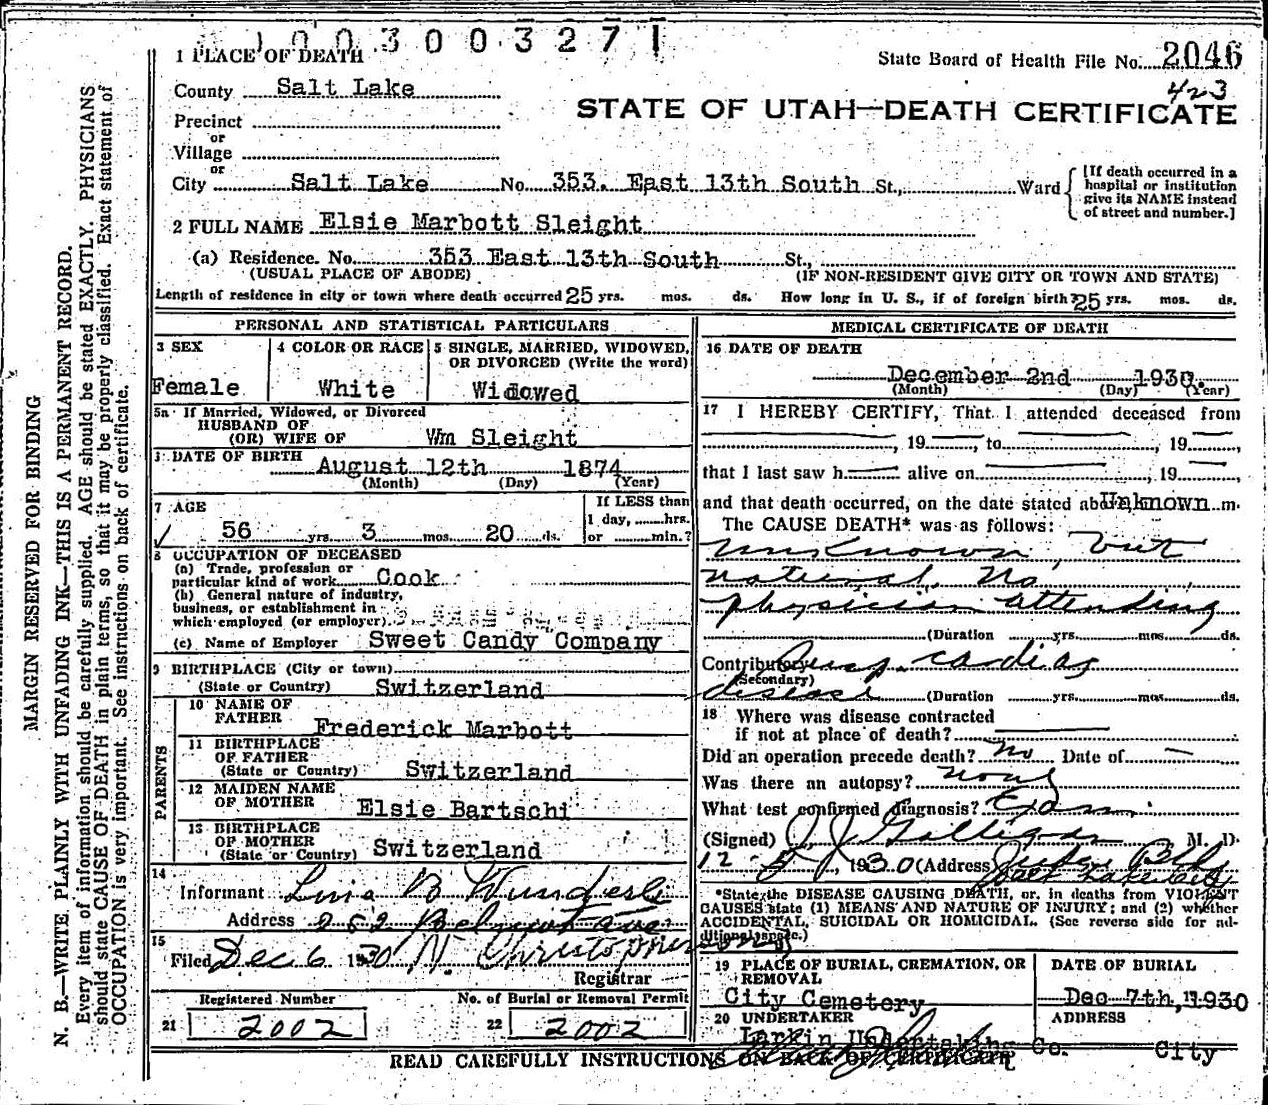 1003003271
1 PLACE OF DEATH
State Board of Health File No. 2046
County Salt Lake
423
STATE OF UTAH—DEATH CERTIFICATE
Precinct
or
Village
or
City Salt Lake No. 353. East 13th South St., Ward
[If death occurred in a
hospital or institution
give its NAME instead
of street and number.]
2 FULL NAME Elsie Marbott Sleight
(a) Residence. No. 353 East 13th South St.,
(USUAL PLACE OF ABODE) (IF NON-RESIDENT GIVE CITY OR TOWN AND STATE)
Length of residence in city or town where death occurred 25 yrs. mos. ds. How long in U. S., if of foreign birth? 25 yrs. mos. ds.
PERSONAL AND STATISTICAL PARTICULARS
3 SEX
Female
4 COLOR OR RACE
White
5 SINGLE, MARRIED, WIDOWED,
OR DIVORCED (Write the word)
Widowed
5a If Married, Widowed, or Divorced
HUSBAND OF
(OR) WIFE OF Wm Sleight
DATE OF BIRTH
August 12th 1874
(Month) (Day) (Year)
7 AGE
56 yrs. 3 mos. 20 ds.
If LESS than
1 day, hrs.
or min.?
8 OCCUPATION OF DECEASED
(a) Trade, profession or
particular kind of work Cook
(b) General nature of industry,
business, or establishment in
which employed (or employer)
(c) Name of Employer Sweet Candy Company
9 BIRTHPLACE (City or town)
(State or Country) Switzerland
PARENTS
10 NAME OF
FATHER Frederick Marbott
11 BIRTHPLACE
OF FATHER
(State or Country) Switzerland
12 MAIDEN NAME
OF MOTHER Elsie Bartschi
13 BIRTHPLACE
OF MOTHER
(State or Country) Switzerland
14
Informant B Wunderli
Address 252 Belmont Ave
15
Filed Dec 6 1930 N. Christopherson
Registrar
Registered Number
21 2002
No. of Burial or Removal Permit
22 2002
MEDICAL CERTIFICATE OF DEATH
16 DATE OF DEATH
December 2nd 1930.
(Month) (Day) (Year)
17 I HEREBY CERTIFY, That I attended deceased from
, 19 to , 19
that I last saw h alive on , 19
and that death occurred, on the date stated ab Unknown m.
The CAUSE DEATH* was as follows:
Unknown but
natural. No
physician attending
(Duration yrs. mos. ds.
Contributory cardiac
(Secondary)
disease (Duration yrs. mos. ds.
18 Where was disease contracted
if not at place of death?
Did an operation precede death? No Date of —
Was there an autopsy?
What test confirmed diagnosis? Exam.
(Signed) J J Galligan M. D.
12-5, 1930 (Address)
*State the DISEASE CAUSING DEATH, or, in deaths from VIOLENT
CAUSES state (1) MEANS AND NATURE OF INJURY; and (2) whether
ACCIDENTAL, SUICIDAL OR HOMICIDAL. (See reverse side for ad-
ditional space.)
19 PLACE OF BURIAL, CREMATION, OR
REMOVAL
City Cemetery
DATE OF BURIAL
Dec 7th, 1930
20 UNDERTAKER
Larkin Undertaking Co.
ADDRESS
City
READ CAREFULLY INSTRUCTIONS ON BACK OF CERTIFICATE
MARGIN RESERVED FOR BINDING
N. B.—WRITE PLAINLY WTH UNFADING INK—THIS IS A PERMANENT RECORD.
Every item of information should be carefully supplied. AGE should be stated EXACTLY. PHYSICIANS
should state CAUSE OF DEATH in plain terms, so that it may be properly classified. Exact statement of
OCCUPATION is very important. See instructions on back of certificate.